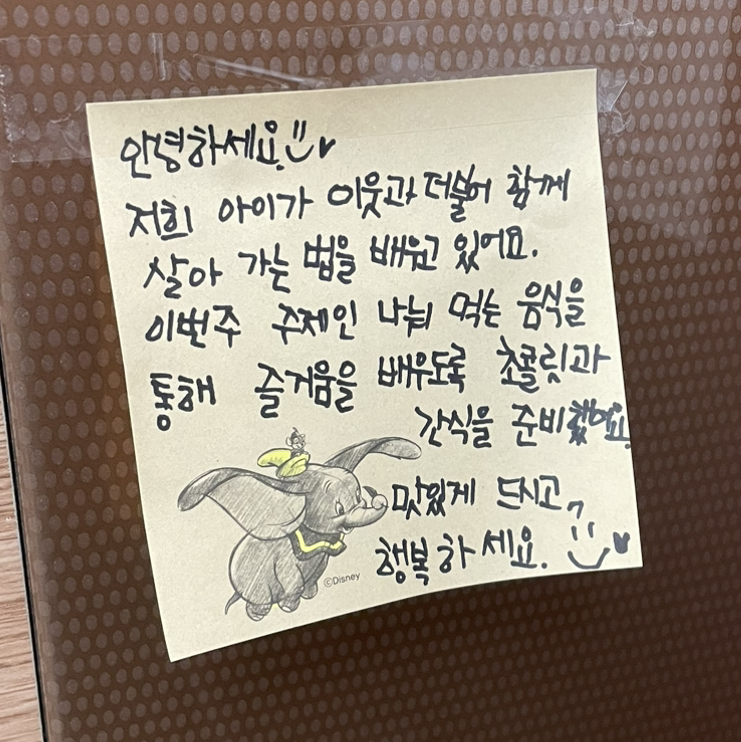 안녕하세요.
저희 아이가 이웃과 더불어 함께
살아 가는 법을 배우고 있어요.
이번주 주제인 나눠 먹는 음식을
통해 즐거움을 배우도록 초콜릿과
간식을 준비했어요.
맛있게 드시고
행복하세요.
©Disney